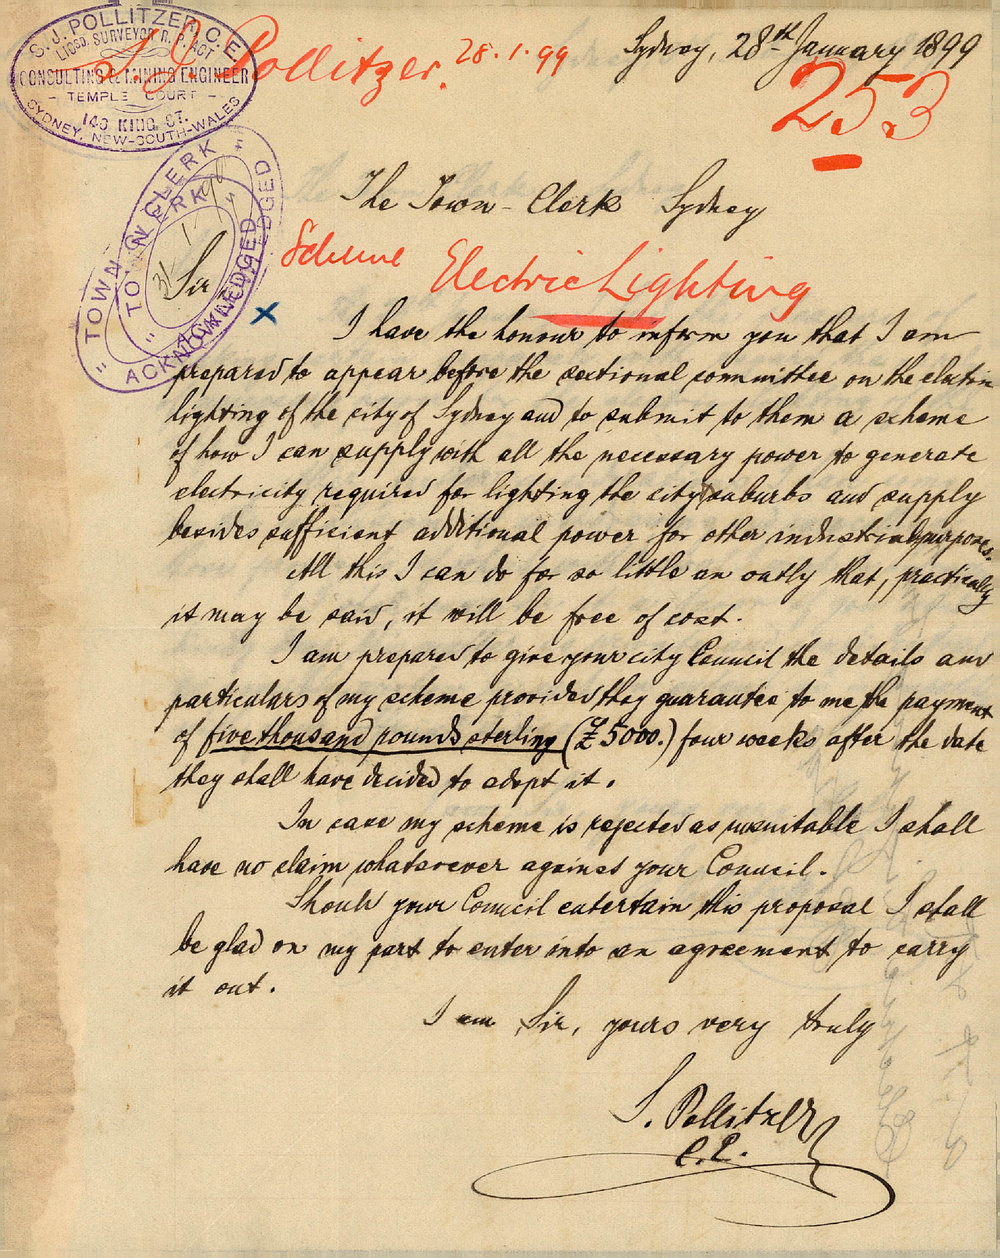 S. J. POLLITZER, C. E.
LICSD. SURVEYOR R. P. ACT.
CONSULTING & MINING ENGINEER
TEMPLE COURT
140 KING ST.
SYDNEY, NEW-SOUTH-WALES
Pollitzer. 28.1.99
Sydney, 28th January 1899
253
"TOWN CLERK"
"TOWN CLERK"
ACKNOWLEDGED
ACKNOWLEDGED
The Town-Clerk Sydney
Sir
Scheme Electric Lighting
x
I have the honour to inform you that I am
prepared to appear before the sectional committee on the electric
lighting of the city of Sydney and to submit to them a scheme
of how I can supply with all the necessary power to generate
electricity required for lighting the city suburbs and supply
besides sufficient additional power for other industrial purposes.
All this I can do for so little an outly that, practically
it may be said, it will be free of cost.
I am prepared to give your city Council the details and
particulars of my scheme provided they guarantee to me the payment
of five thousand pounds sterling (£5000.) four weeks after the date
they shall have decided to adopt it.
In case my scheme is rejected as unsuitable I shall
have no claim whatsoever against your Council.
Should your Council entertain this proposal I shall
be glad on my part to enter into an agreement to carry
it out.
I am Sir, yours very truly
S. Pollitzer
C.E.